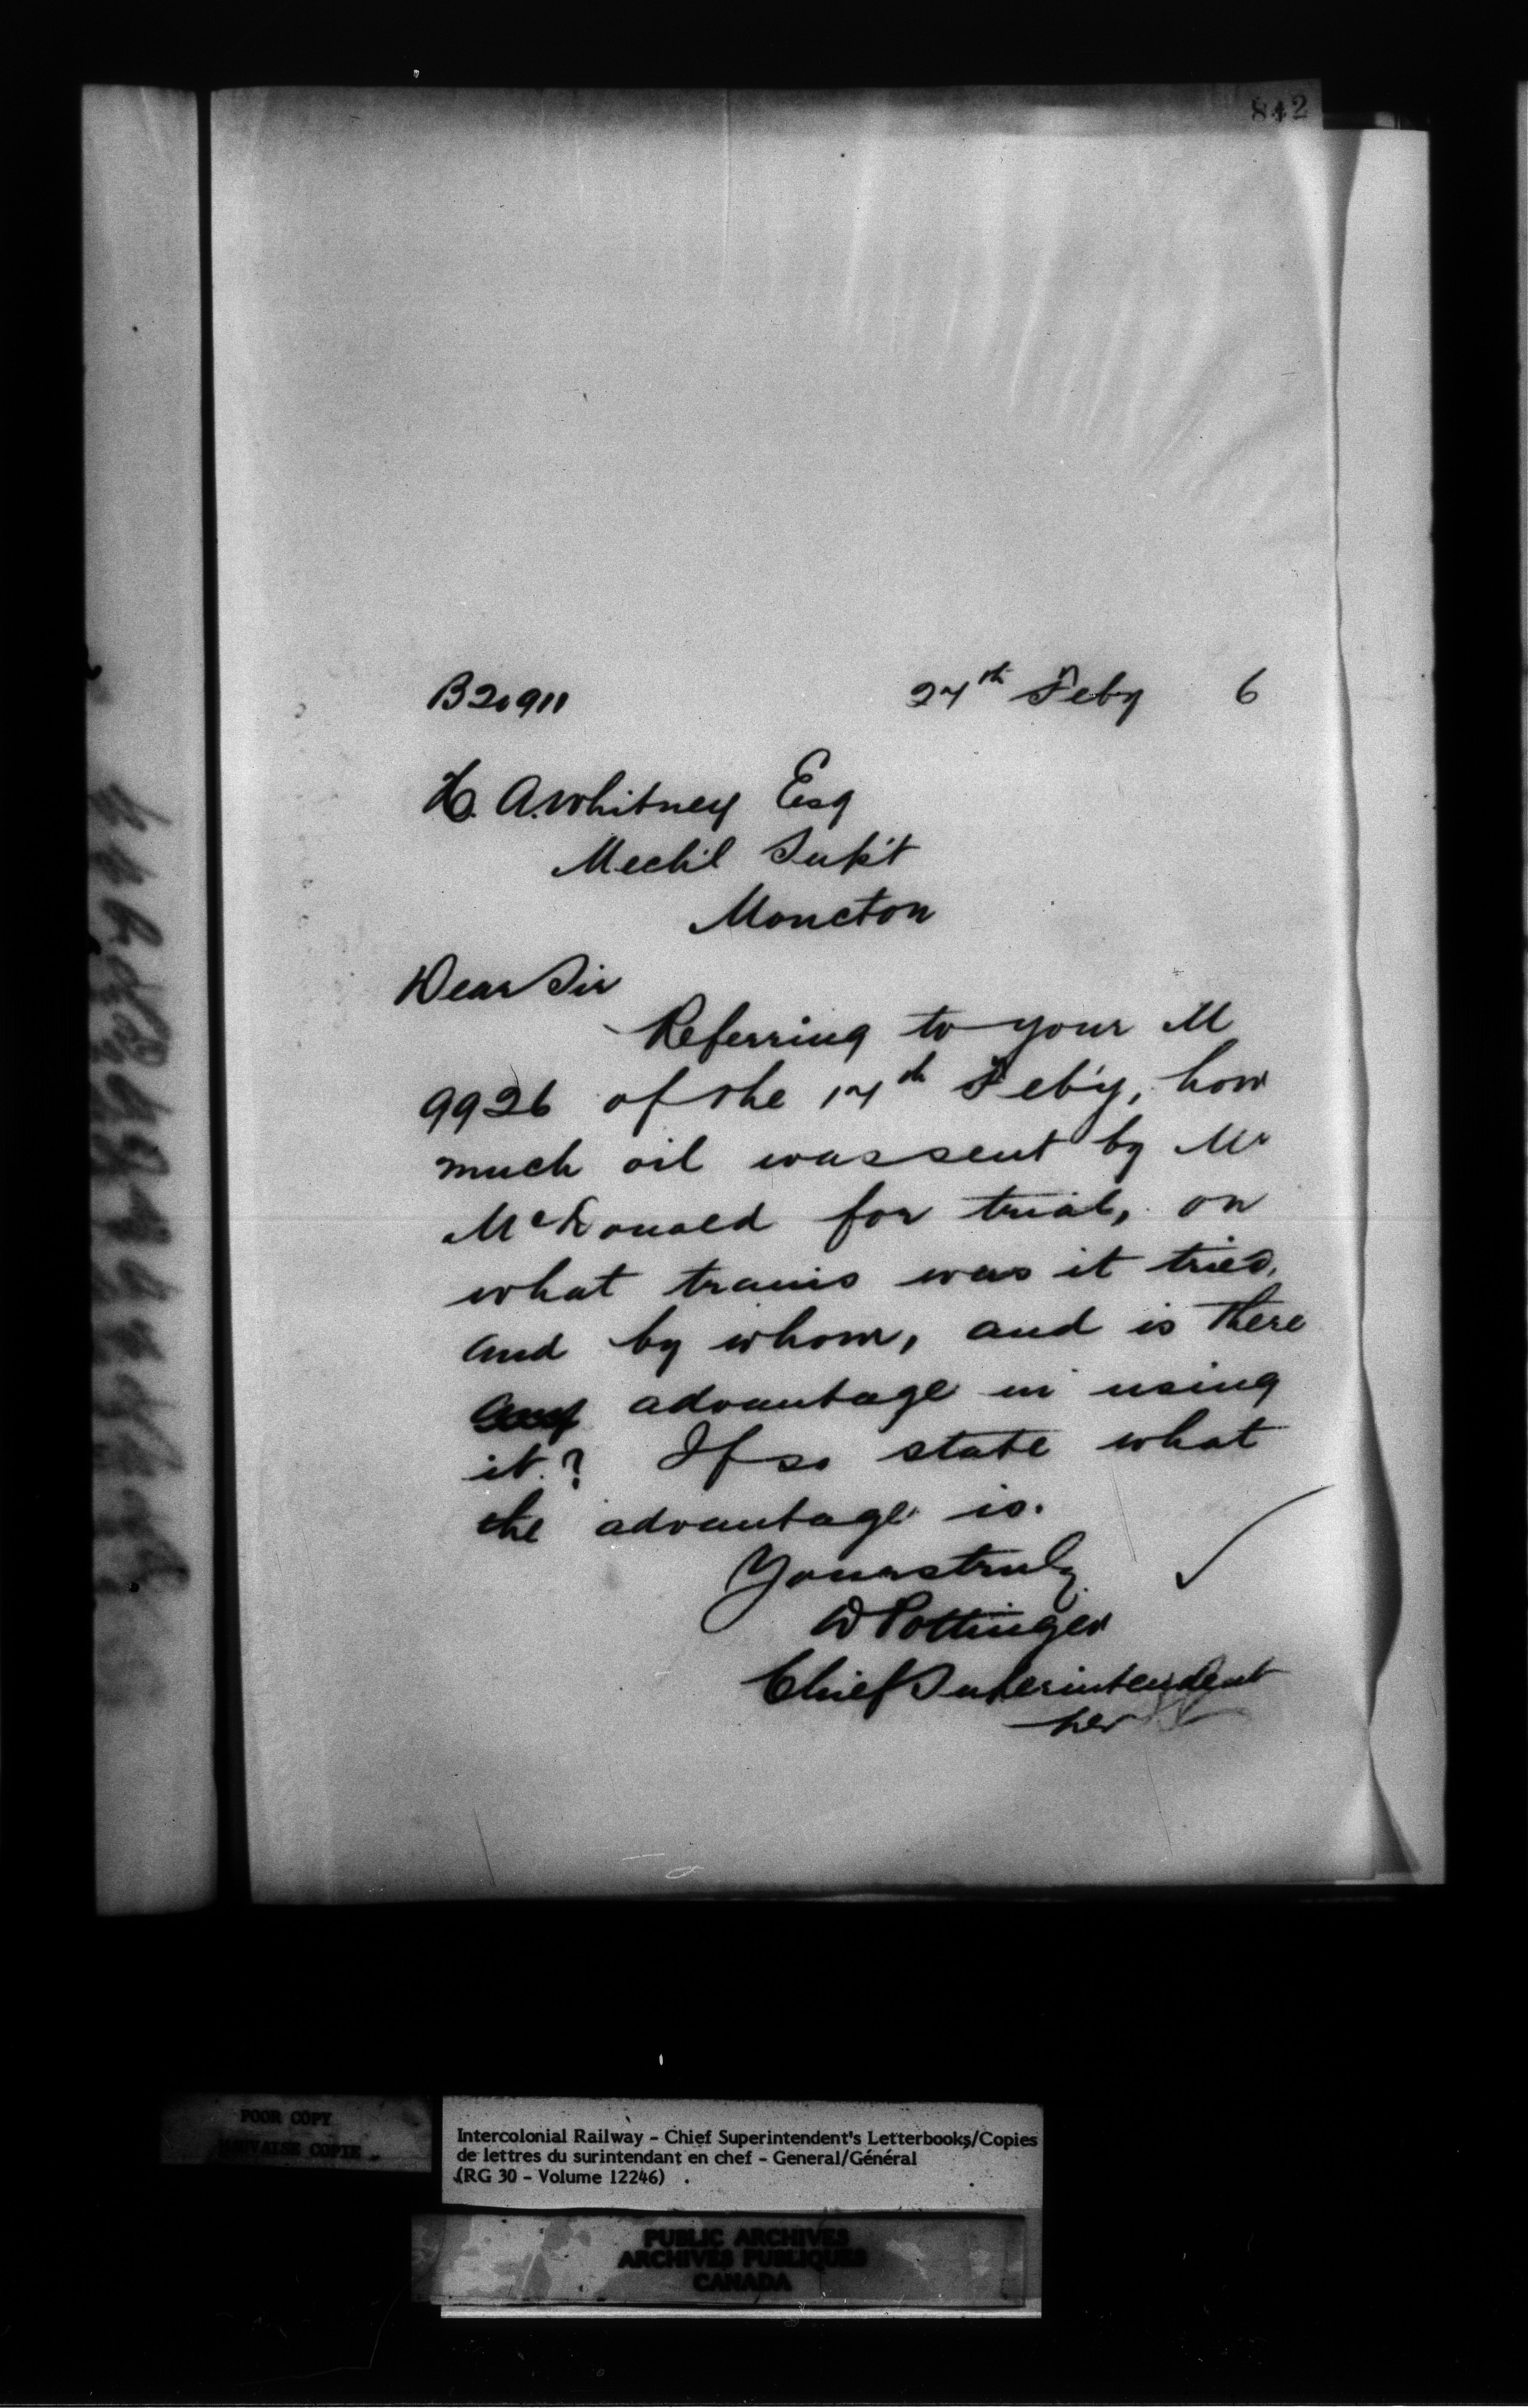 842
B20911 27th Feby 6
H. A. Whitney Esq
Mech'l Sup't
Moncton
Dear Sir
Referring to your M
9926 of the 17th Feb'y, how
much oil was sent by Mr
McDonald for trial, on
what trains was it tried,
and by whom, and is there
any advantage in using
it? If so state what
the advantage is.
Yours truly
D Pottinger
Chief Superintendent
POOR COPY
MAUVAISE COPIE
Intercolonial Railway - Chief Superintendent's Letterbooks/Copies
de lettres du surintendant en chef - General/Général
(RG 30 - Volume 12246)
PUBLIC ARCHIVES
ARCHIVES PUBLIQUES
CANADA